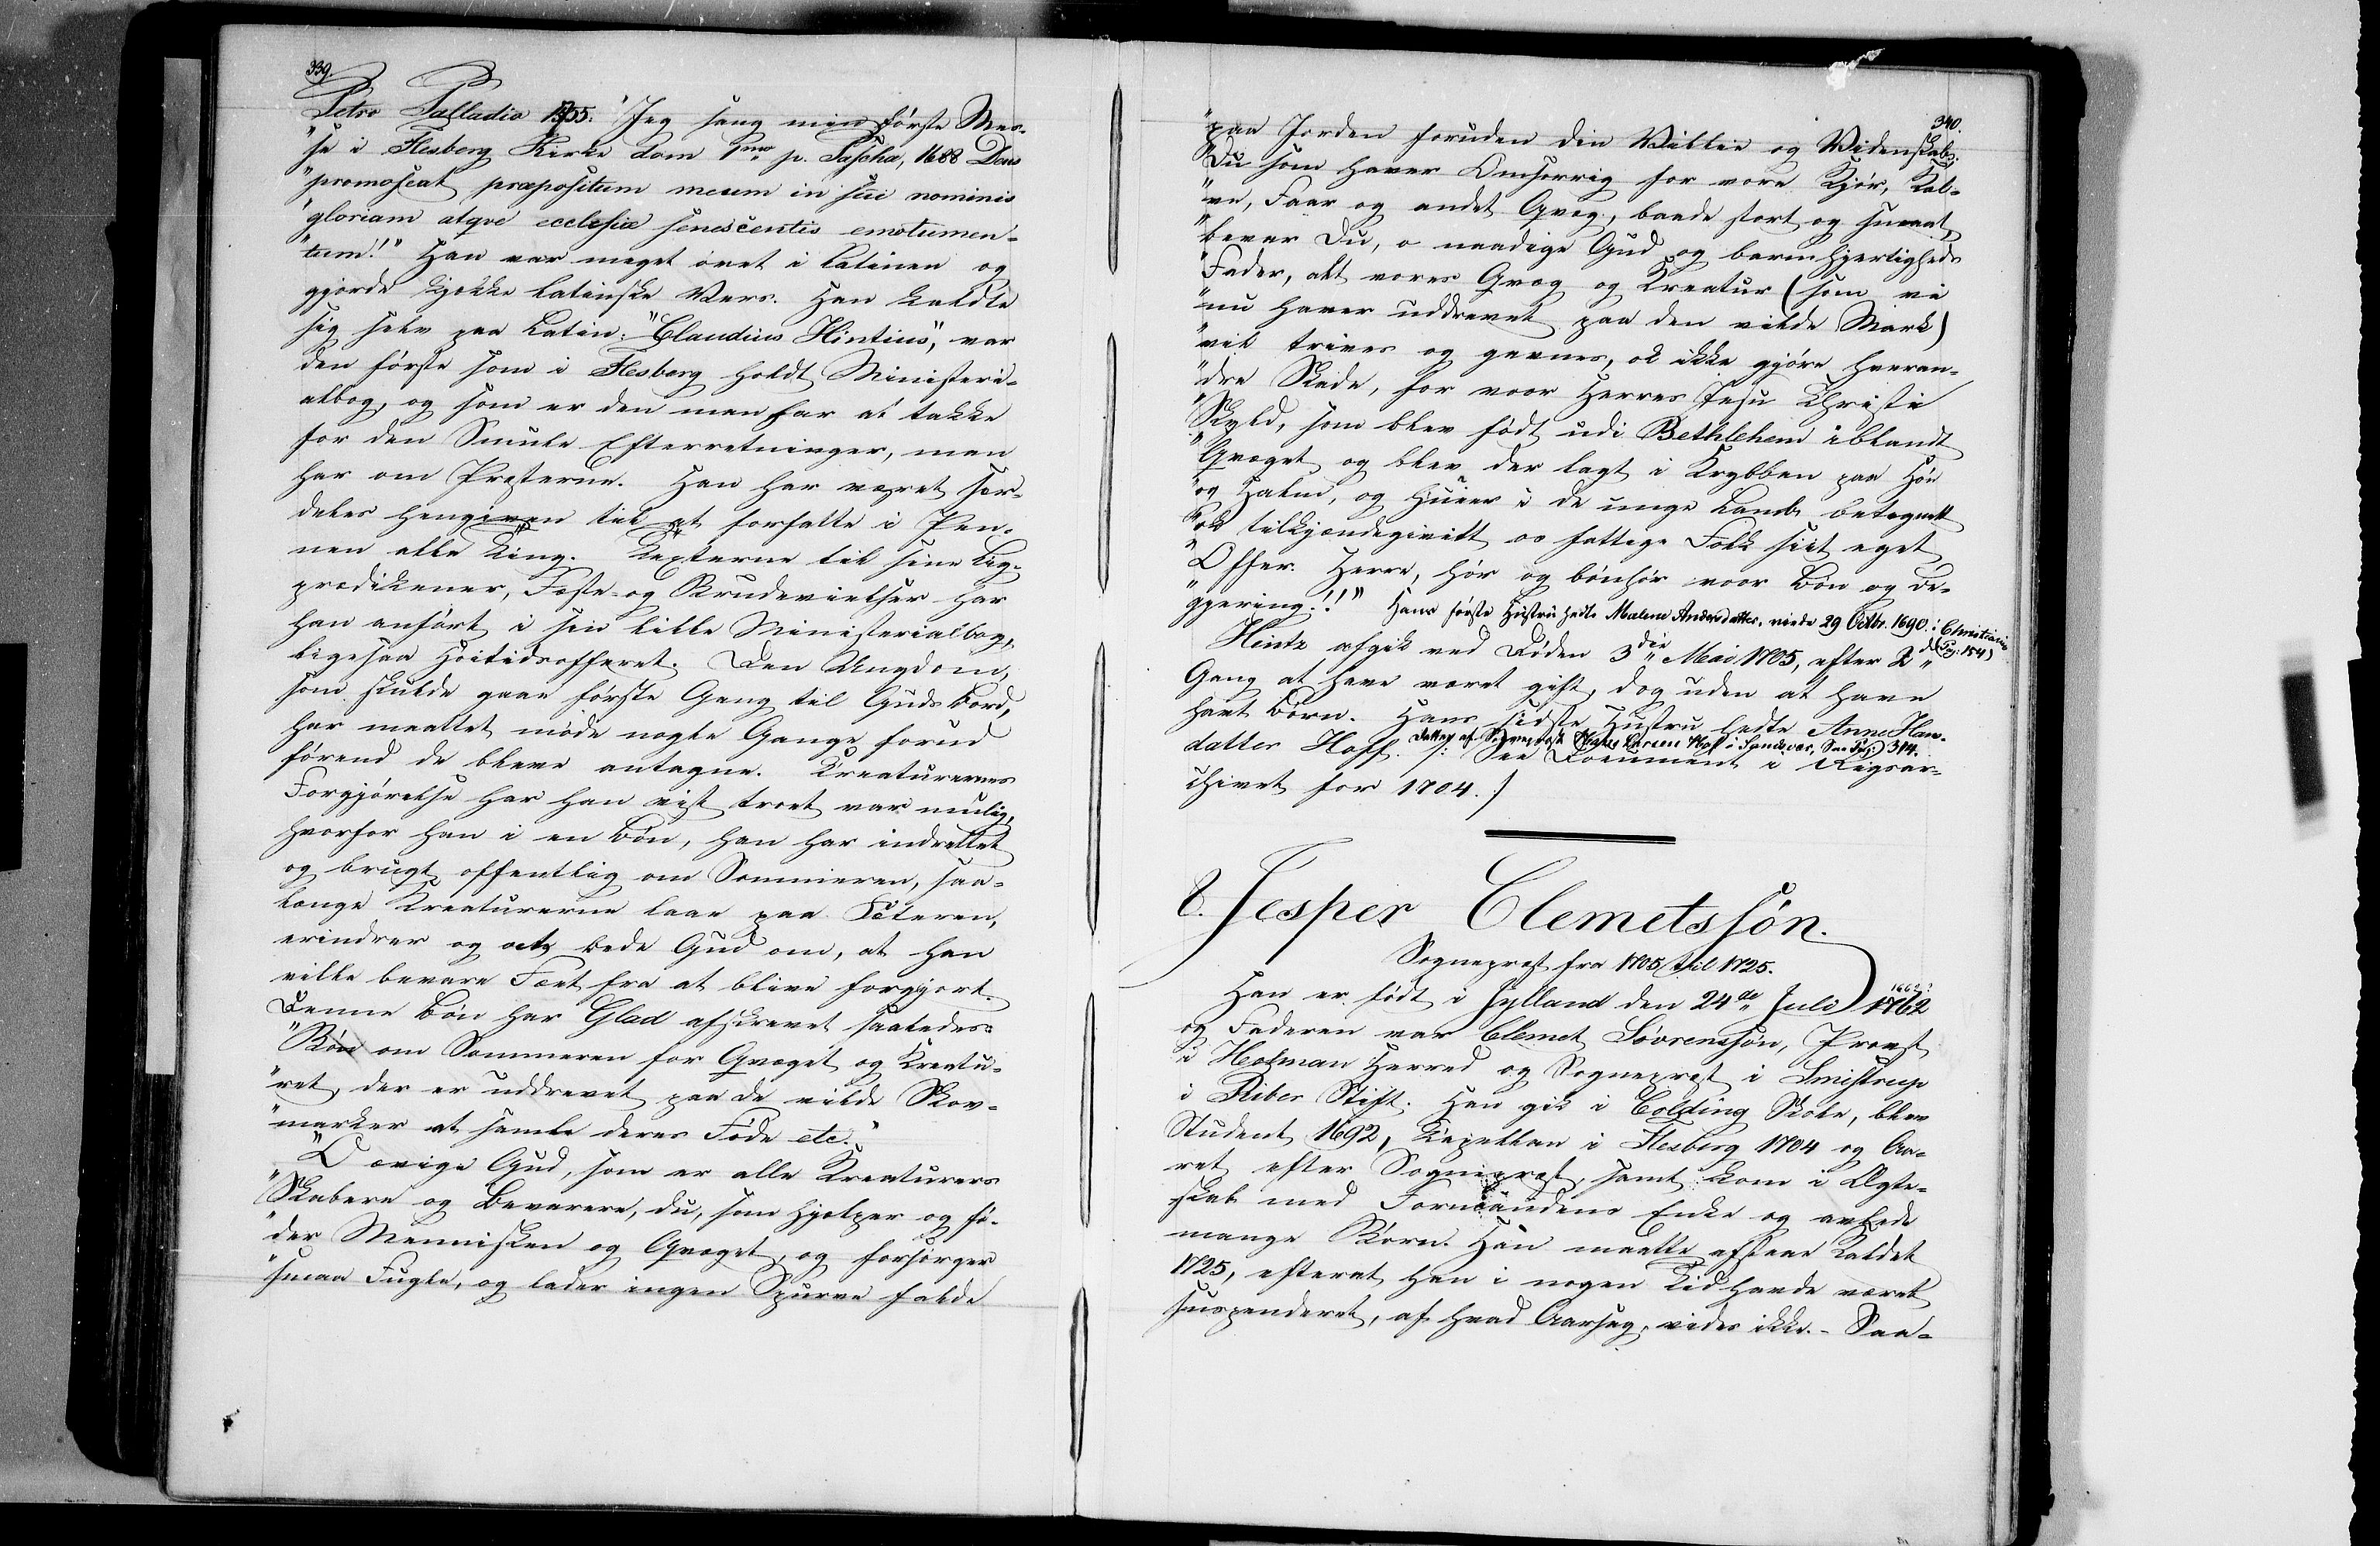 339.
Petro Palladio 1555. "Jeg sang min første Mes-
"se i Flesberg Kirke dom 1mo p. Pascha, 1688 Deus
"promoscat præpositum meum in sui nominis
"gloriam atqve ecclesiæ senescentis emolumen-
"tum!" Han var meget øvet i Latinen og
gjorde Kjække latinske Vers. Han kaldte
sig selv paa Latin: "Claudius Hintius", var
den første som i Flesberg holdt Ministeri-
albog, og som er den man har at takke
for den Smule Efterretninger, man
har om Præsterne. Han har været sær-
deles hengiven til at forfatte i Pen-
nen alle Ting. Texterne til sine Lig-
prædikener, Fæste- og Brudevielser har
han anført i sin lille Ministerialbog,
ligesaa Høitidsofferet. Den Ungdom,
som skulde gaae første Gang til Guds Bord,
har maattet møde nogle Gange forud
førend de bleve antagne. Kreaturernes
Forgjørelse har han vist troet var mulig,
hvorfor han i en Bøn, han har indrettet
og brugt offentlig om Sommeren, saa-
længe Kreaturerne laae paa Sæteren,
erindrer og at bede Gud om, at han
vilde bevare Fæet fra at blive forgjort.
Denne Bøn har Glad afskrevet saaledes:
"Bøn om Sommeren for Qvæget og Kreatu-
"ret, der er uddrevet paa de vilde Skov-
"marker at samle deres Føde etc."
"O ævige Gud, som er alle Kreaturers
"Skabere og Bevarere, du, som hjelper og fø-
"der Mennisken og Qvæget, og forsørger
"smaa Fugle, og lader ingen Spurve falde
340.
"paa Jorden foruden din Villie og Videnskab.
"Du som haver Omsorrig for vore Kjør, Kal-
"ve, Faar og andet Qvæg, baade stort og smaat,
"bevar Du, o naadige Gud og barmhjertigheds
"Fader, alt vores Qvæg og Kreatur (som vi
"nu haver uddrevet paa den vilde Mark)
"vil trives og gavnes, ok ikke gjøre hveran-
"dre Skade, for voor Herres Jesu Christi
"Skyld, som blev født udi Bethlehem iblandt
"Qvæget og blev der lagt i Krybben paa Hø
"og Halm, og i de unge Lamb betegnett
"ok tilkjendegivitt os fattige Folk siit eget
"Offer. Herre, hør og bønhør voor Bøn og Be-
"gjering!!" Hans første Hustru hedte Malene Andersdatter, viede 29 Octbr. 1690 i Christiania
(Pg. 154)
Hintz afgik ved Døden 3die Mai 1705, efter 2d
Gang at have været gift, dog uden at have
havt Børn. Hans sidste Hustru hedte Anne Hans-
datter af Sognepræst Hans Larsen Hoff i Sandsvær, See Pg: 314.
datter Hoff. /: See Document i Rigsar-
chivet for 1704. :/
8. Jesper Clemetssøn.
Sognepræst fra 1705 til 1725.
1662?
Han er født i Jylland den 24de Juli 1762
og Faderen var Clemet Sørenssøn, Provst
i Holman Herred og Sognepræst i Smistrup
i Riber Stift. Han gik i Colding Skole, blev
Student 1692, Kapellan i Flesberg 1704 og Aa-
ret efter Sognepræst, samt kom i Ægte-
skab med Formandens Enke og avlede
mange Børn. Han maatte afstaae Kaldet
1725, efterat han i nogen Tid havde været
suspenderet, af hvad Aarsag, vides ikke. - Saa-